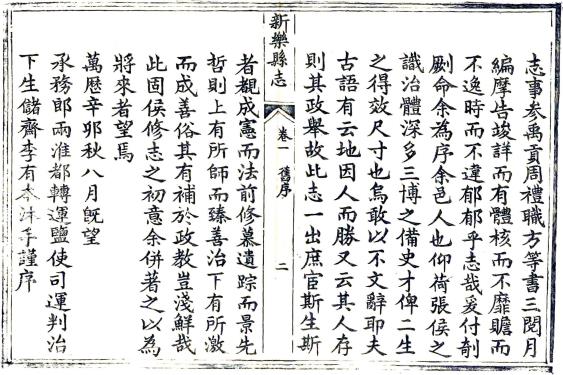 志事参禹貢周禮職方等書三閱月
編摩告竣詳而有體核而不靡贍而
不逸時而不違郁郁乎志哉爰付剞
劂命余為序余邑人也仰荷張侯之
識治體深多三博之備史才俾二生
之得效尺寸也烏敢以不文辭耶夫
古語有云地因人而勝又云其人存
則其政舉故此志一出庶宦斯生斯
新樂縣志
卷一
舊序
二
者覩成憲而法前修慕遺踪而景先
哲則上有所師而臻善治下有所激
而成善俗其有補於政教豈淺鮮哉
此固侯修志之初意余併著之以為
將來者望焉
萬歷辛卯秋八月既望
承務郎兩淮都轉運鹽使司運判治
下生儲齋李有沐手謹序